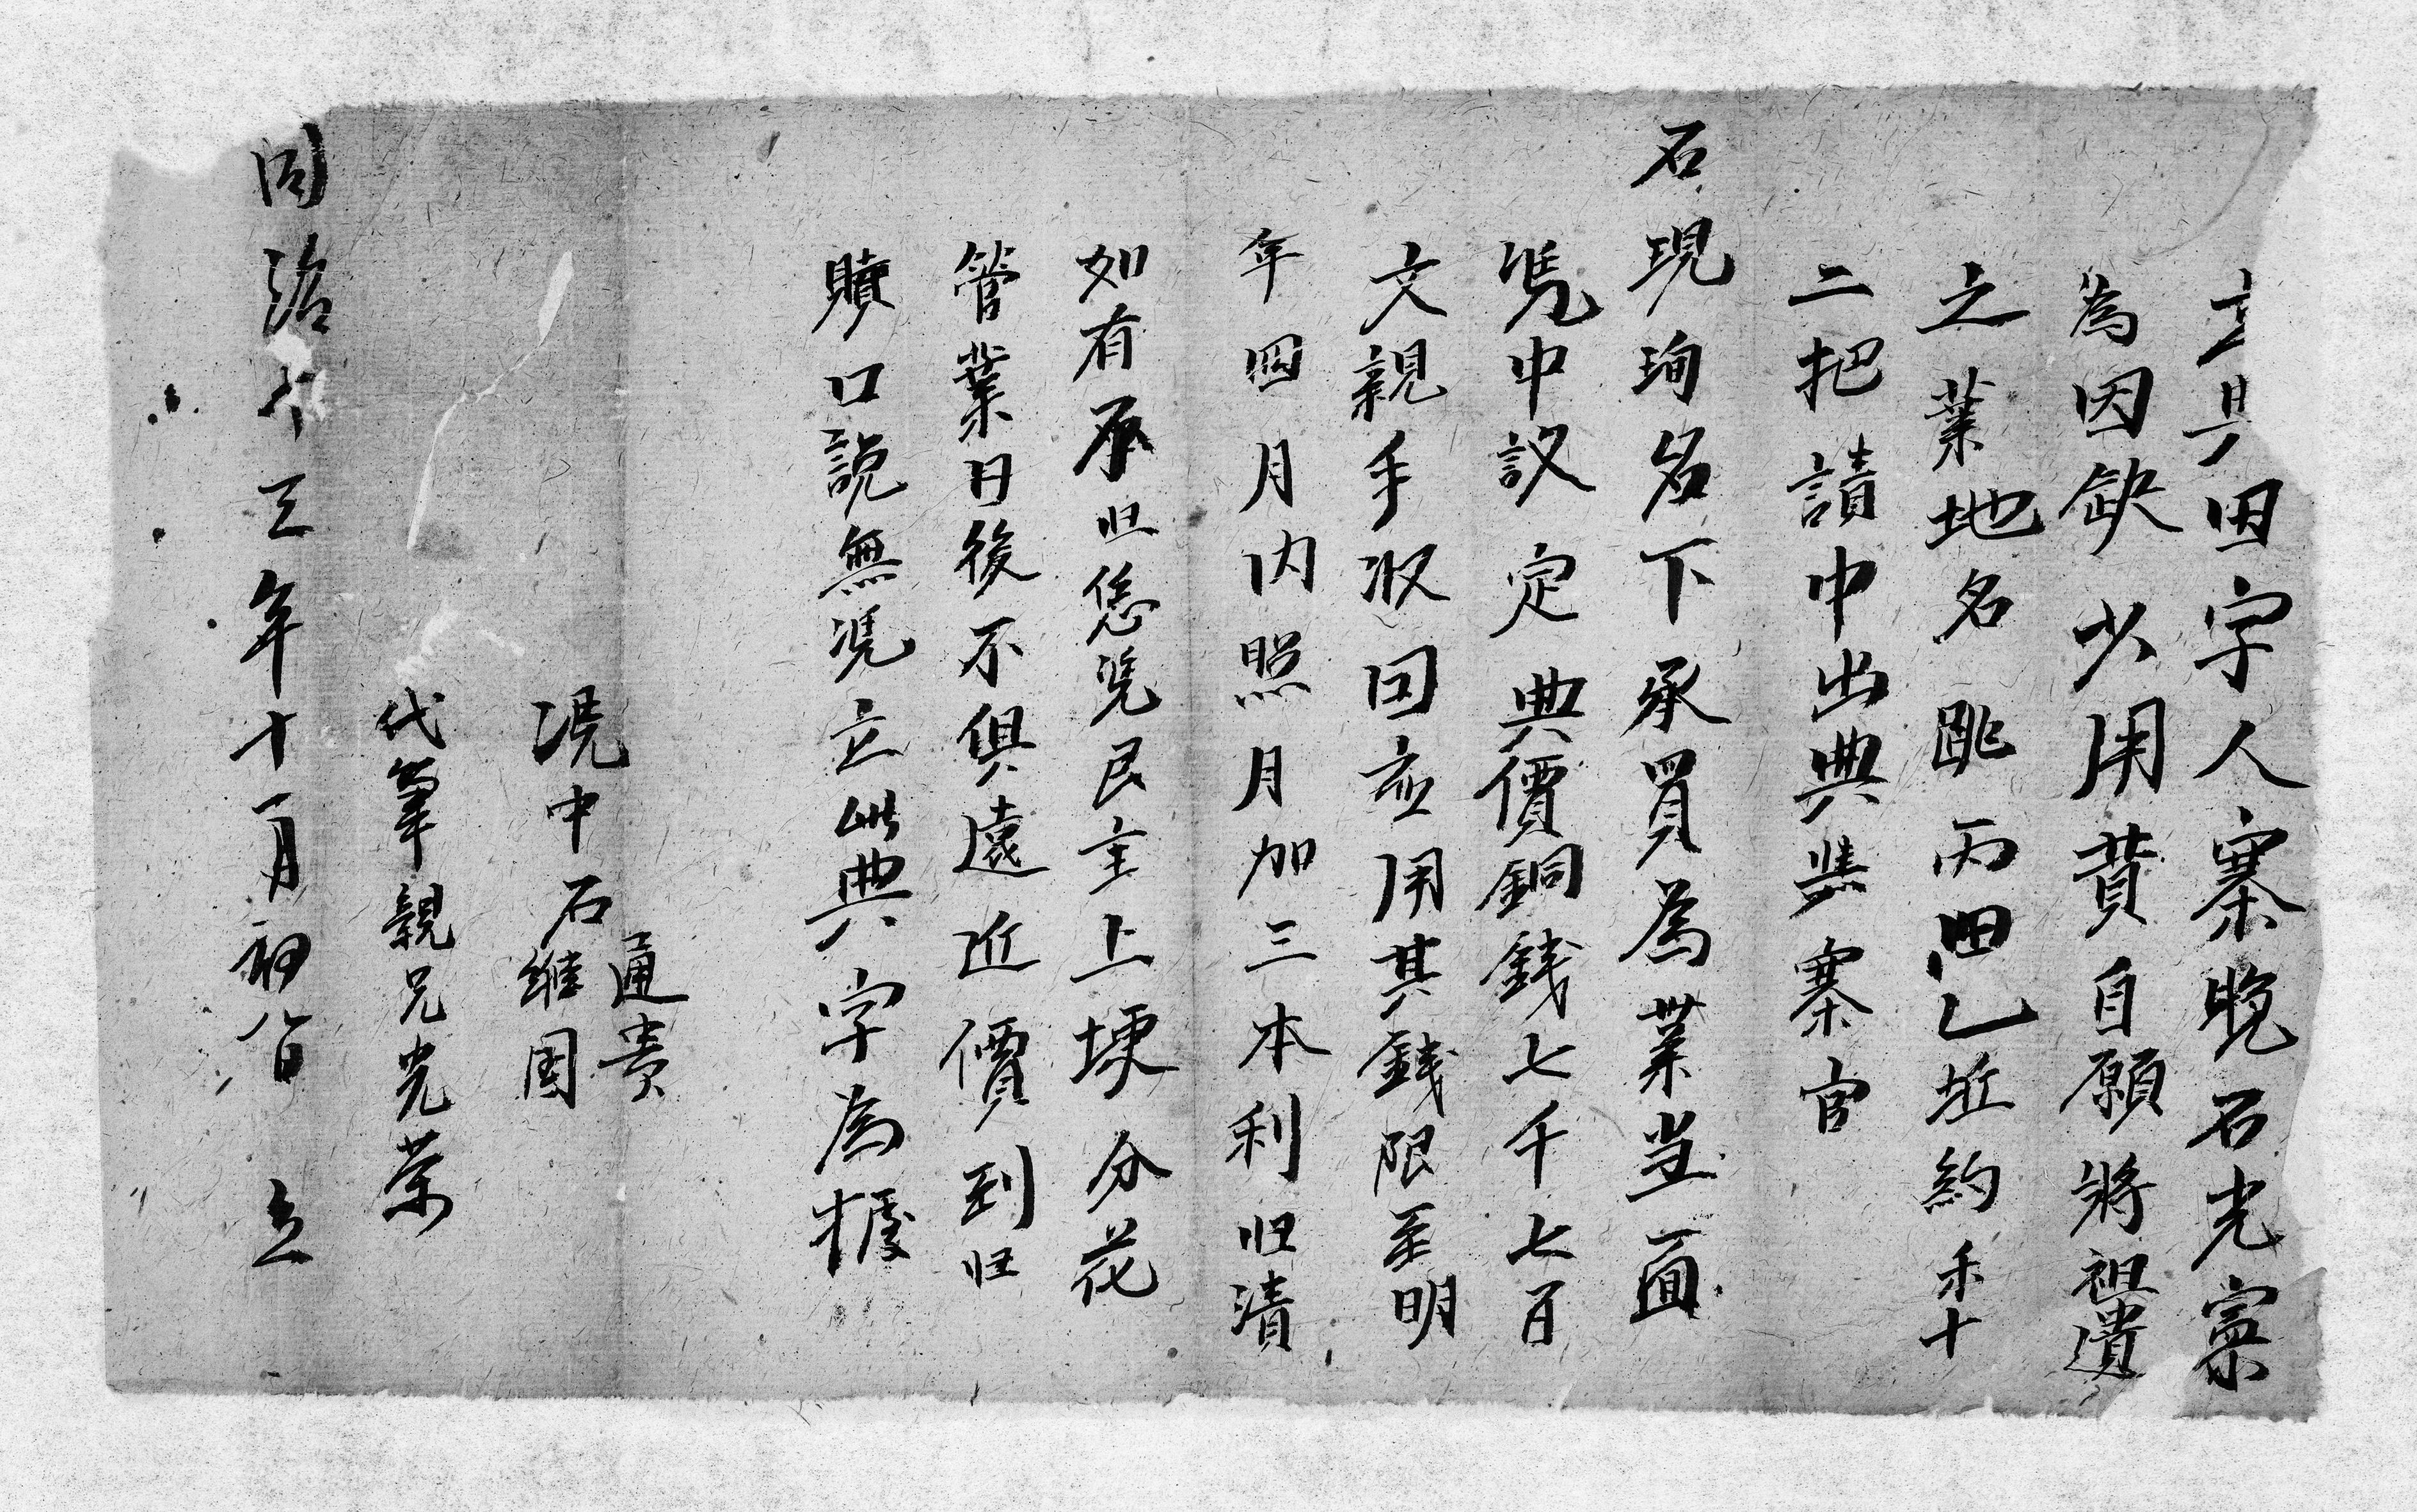 立具田字人寨晚石光寀
為因缺少用費自願將祖遺
之業地名跳丙田乙坵約禾十
二把請中出典與寨官
石現珣名下承買為業当面
凴中議定典價銅錢七千七百
文親手収回应用其錢限至明
年四月内照月加三本利归清
如有不归恁凴艮主上埂分花
管業日後不俱遠近價到归
贖口說無凴立此典字為據
通貴
凴中石維周
代筆親兄光荣
同治十三年十一月初八日 立